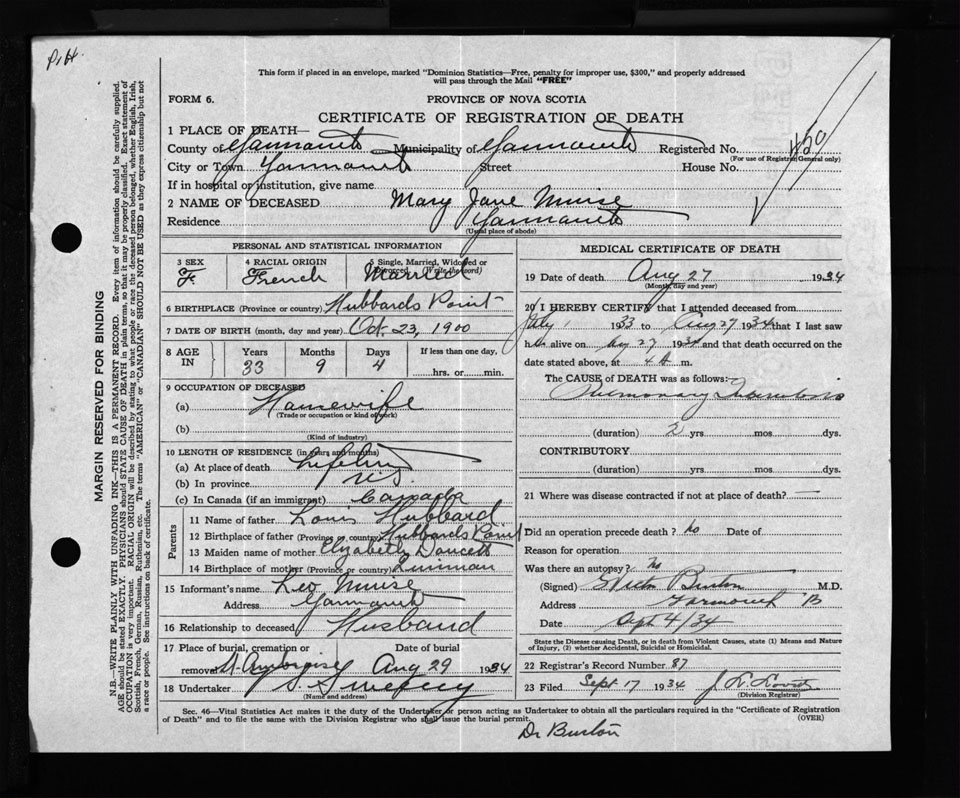 P.H.
This form if placed in an envelope, marked "Dominion Statistics—Free, penalty for improper use, $300," and properly addressed
will pass through the Mail "FREE"
FORM 6.
PROVINCE OF NOVA SCOTIA
CERTIFICATE OF REGISTRATION OF DEATH
1 PLACE OF DEATH—
County of Yarmouth Municipality of Yarmouth Registered No.
(For use of Registrar General only)
City or Town Yarmouth Street House No.
If in hospital or institution, give name
2 NAME OF DECEASED Mary Jane Muise
Residence Yarmouth
(Usual place of abode)
PERSONAL AND STATISTICAL INFORMATION
3 SEX 4 RACIAL ORIGIN 5 Single, Married, Widowed or Divorced (Write the word)
F. French Married
6 BIRTHPLACE (Province or country) Hubbards Point
7 DATE OF BIRTH (month, day and year) Oct. 23, 1900
8 AGE IN Years Months Days If less than one day,
33 9 4 hrs. or min.
9 OCCUPATION OF DECEASED
(a) Housewife
(Trade or occupation or kind of work)
(b)
(Kind of industry)
10 LENGTH OF RESIDENCE (in years and months)
(a) At place of death Lifetime
(b) In province N.S.
(c) In Canada (if an immigrant) Canada
Parents
11 Name of father Louis Hubbard
12 Birthplace of father (Province or country) Hubbards Point
13 Maiden name of mother Elizabeth Doucett
14 Birthplace of mother (Province or country)
15 Informant's name Leo Muise
Address Yarmouth
16 Relationship to deceased Husband
17 Place of burial, cremation or Date of burial
removal St. Ambroise Aug 29 1934
18 Undertaker Sweeney
(Name and address)
MEDICAL CERTIFICATE OF DEATH
19 Date of death Aug 27 1934
(Month, day and year)
20 I HEREBY CERTIFY that I attended deceased from
July 1 1933 to Aug 27 1934 that I last saw
her alive on Aug 27 1934 and that death occurred on the
date stated above, at 4 A m.
The CAUSE of DEATH was as follows:
Pulmonary Tuberculosis
(duration) 2 yrs mos dys.
CONTRIBUTORY
(duration) yrs mos dys.
21 Where was disease contracted if not at place of death? —
Did an operation precede death? no Date of
Reason for operation
Was there an autopsy? No
(Signed) Burton M.D.
Address Yarmouth
Date Sept 4/34
State the Disease causing Death, or in death from Violent Causes, state (1) Means and Nature
of Injury, (2) whether Accidental, Suicidal or Homicidal.
22 Registrar's Record Number 87
23 Filed Sept 17 1934
(Division Registrar)
Sec. 46—Vital Statistics Act makes it the duty of the Undertaker or person acting as Undertaker to obtain all the particulars required in the "Certificate of Registration
of Death" and to file the same with the Division Registrar who shall issue the burial permit. (OVER)
Dr Burton
MARGIN RESERVED FOR BINDING
N.B.—WRITE PLAINLY WITH UNFADING INK—THIS IS A PERMANENT RECORD. Every item of information should be carefully supplied.
AGE should be stated EXACTLY. PHYSICIANS should STATE CAUSE OF DEATH in plain terms, so that it may be properly classified. Exact statement of
OCCUPATION is very important. RACIAL ORIGIN will be described by stating to what people or race the deceased person belonged, whether English, Irish,
Scottish, French, German, Russian, Ruthenian, etc. The terms "AMERICAN" or "CANADIAN" SHOULD NOT BE USED as they express citizenship but not
a race or people. See instructions on back of certificate.